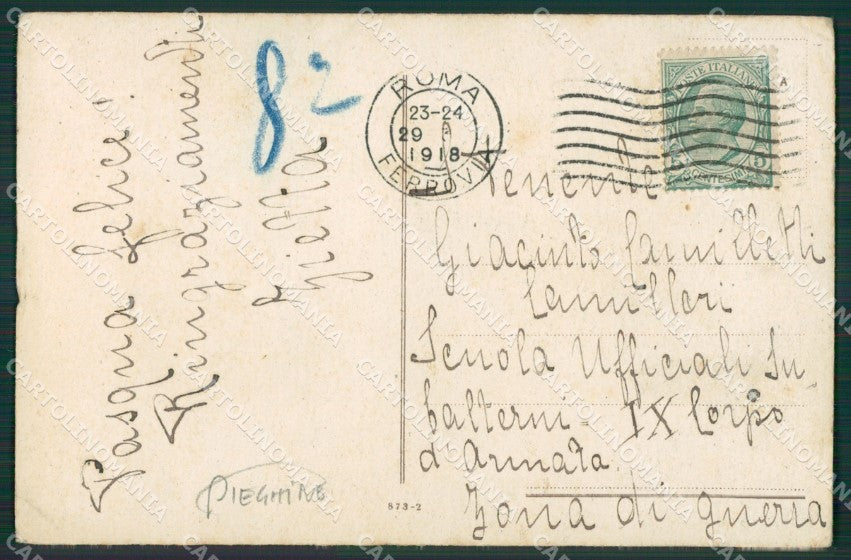 Pasqua felice!
Ringraziamenti
82
PIEGHINE
873-2
ROMA
23-24
29
1918
FERROVIA
POSTE ITALIANE
5 5
CENTESIMI
Tenente
Giacinto Camilletti
Camilleri
Scuola Ufficiali Su-
balterni - IX Corpo
d'Armata.
Zona di guerra
CARTOLINOMANIA